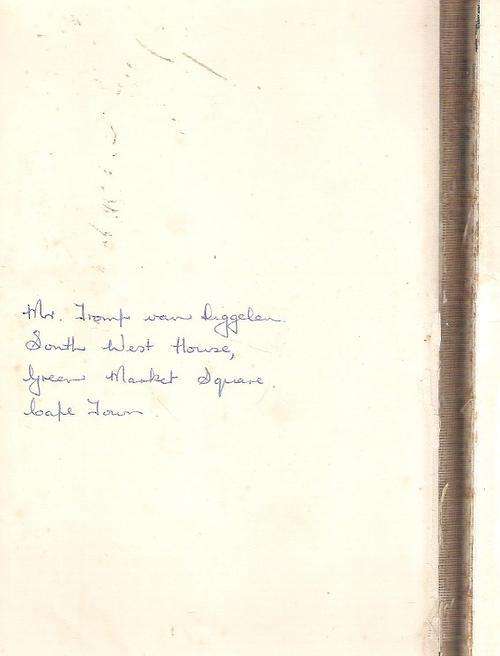 Mr. Tromp van Diggelen.
South West House,
Green Market Square
Cape Town